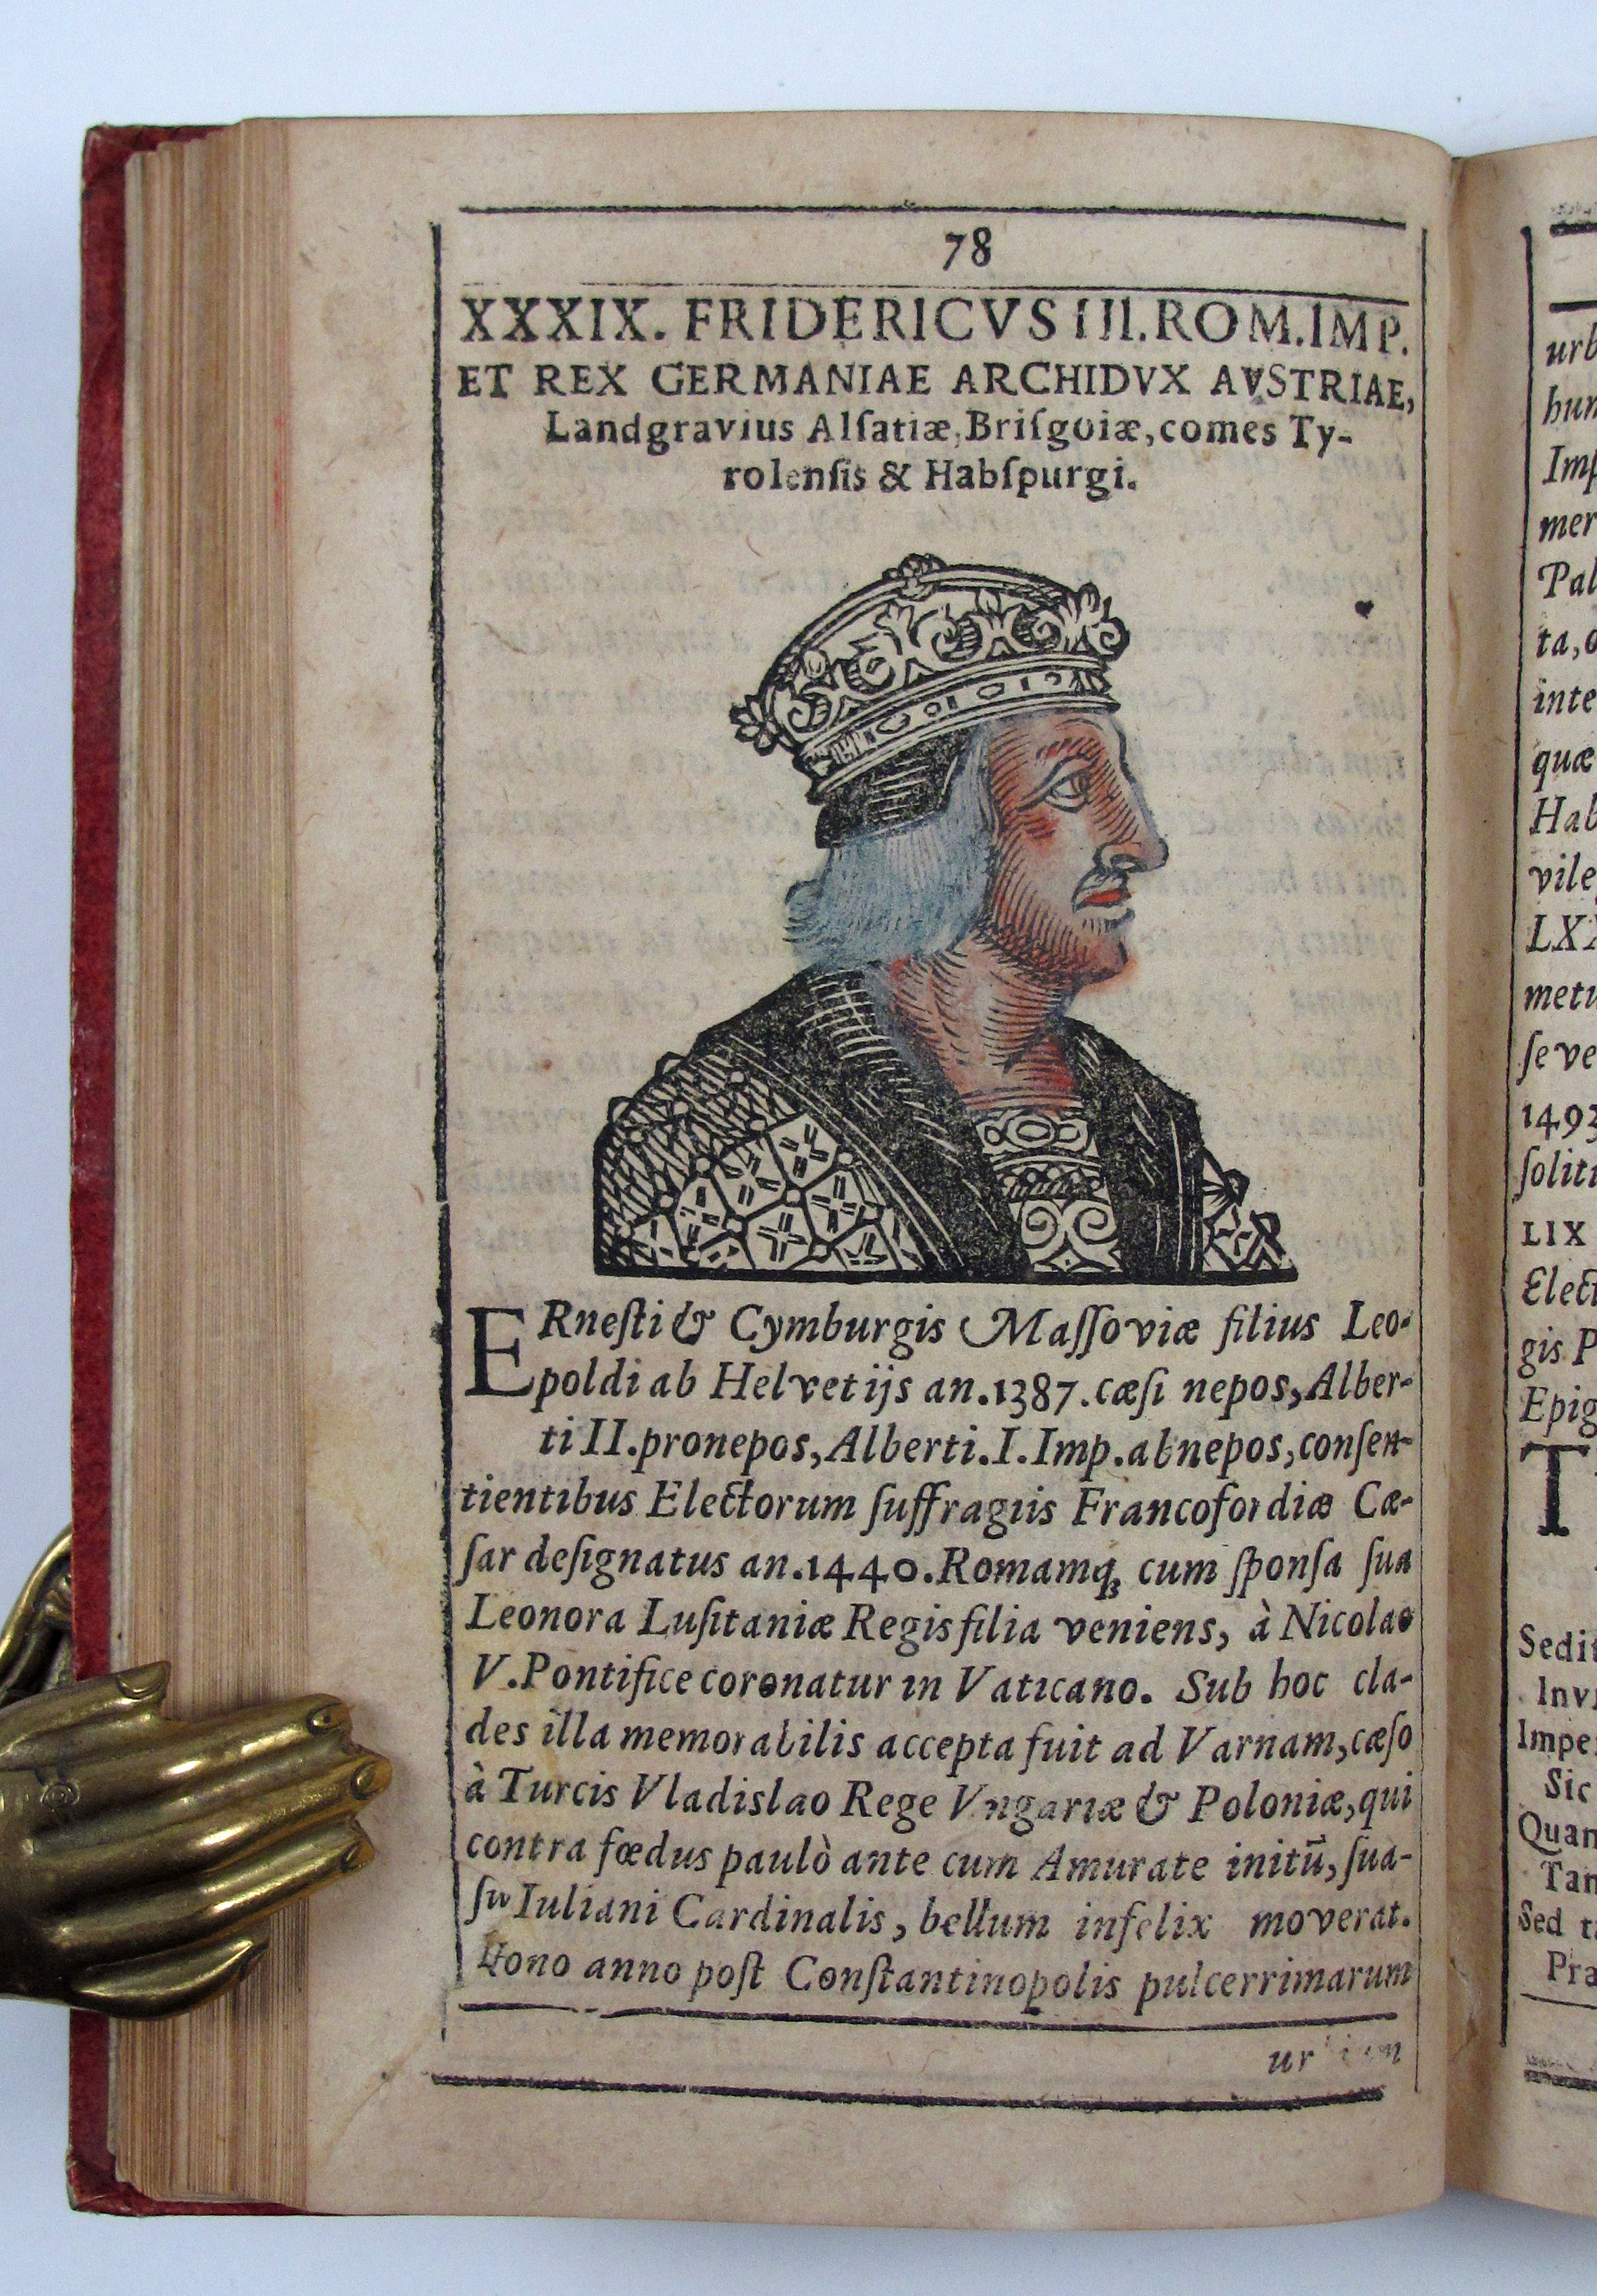 78
XXXIX. FRIDERICVS III. ROM. IMP.
ET REX GERMANIAE ARCHIDVX AVSTRIAE,
Landgravius Alſatiæ, Briſgoiæ, comes Ty-
rolenſis & Habſpurgi.
ERneſti & Cymburgis Maſſoviæ filius Leo-
poldi ab Helvetijs an. 1387. cæſi nepos, Alber-
ti II. pronepos, Alberti. I. Imp. abnepos, conſen-
tientibus Electorum ſuffragiis Francofordiæ Cæ-
ſar deſignatus an. 1440. Romamq; cum ſponſa ſua
Leonora Luſitaniæ Regis filia veniens, à Nicolao
V. Pontifice coronatur in Vaticano. Sub hoc cla-
des illa memorabilis accepta fuit ad Varnam, cæſo
à Turcis Vladislao Rege Vngariæ & Poloniæ, qui
contra fœdus paulò ante cum Amurate initũ, ſua-
ſu Iuliani Cardinalis, bellum infelix moverat.
Nono anno poſt Conſtantinopolis pulcerrimarum
urbium
urb
hum
Imp
mer
Pal
ta, o
inte
quæ
Hab
vile
LXX
metu
ſe ve
1493
ſoliti
LIX
Elect
gis P
Epig
T
Sedit
Invi
Impe
Sic
Quan
Tan
Sed t
Pra